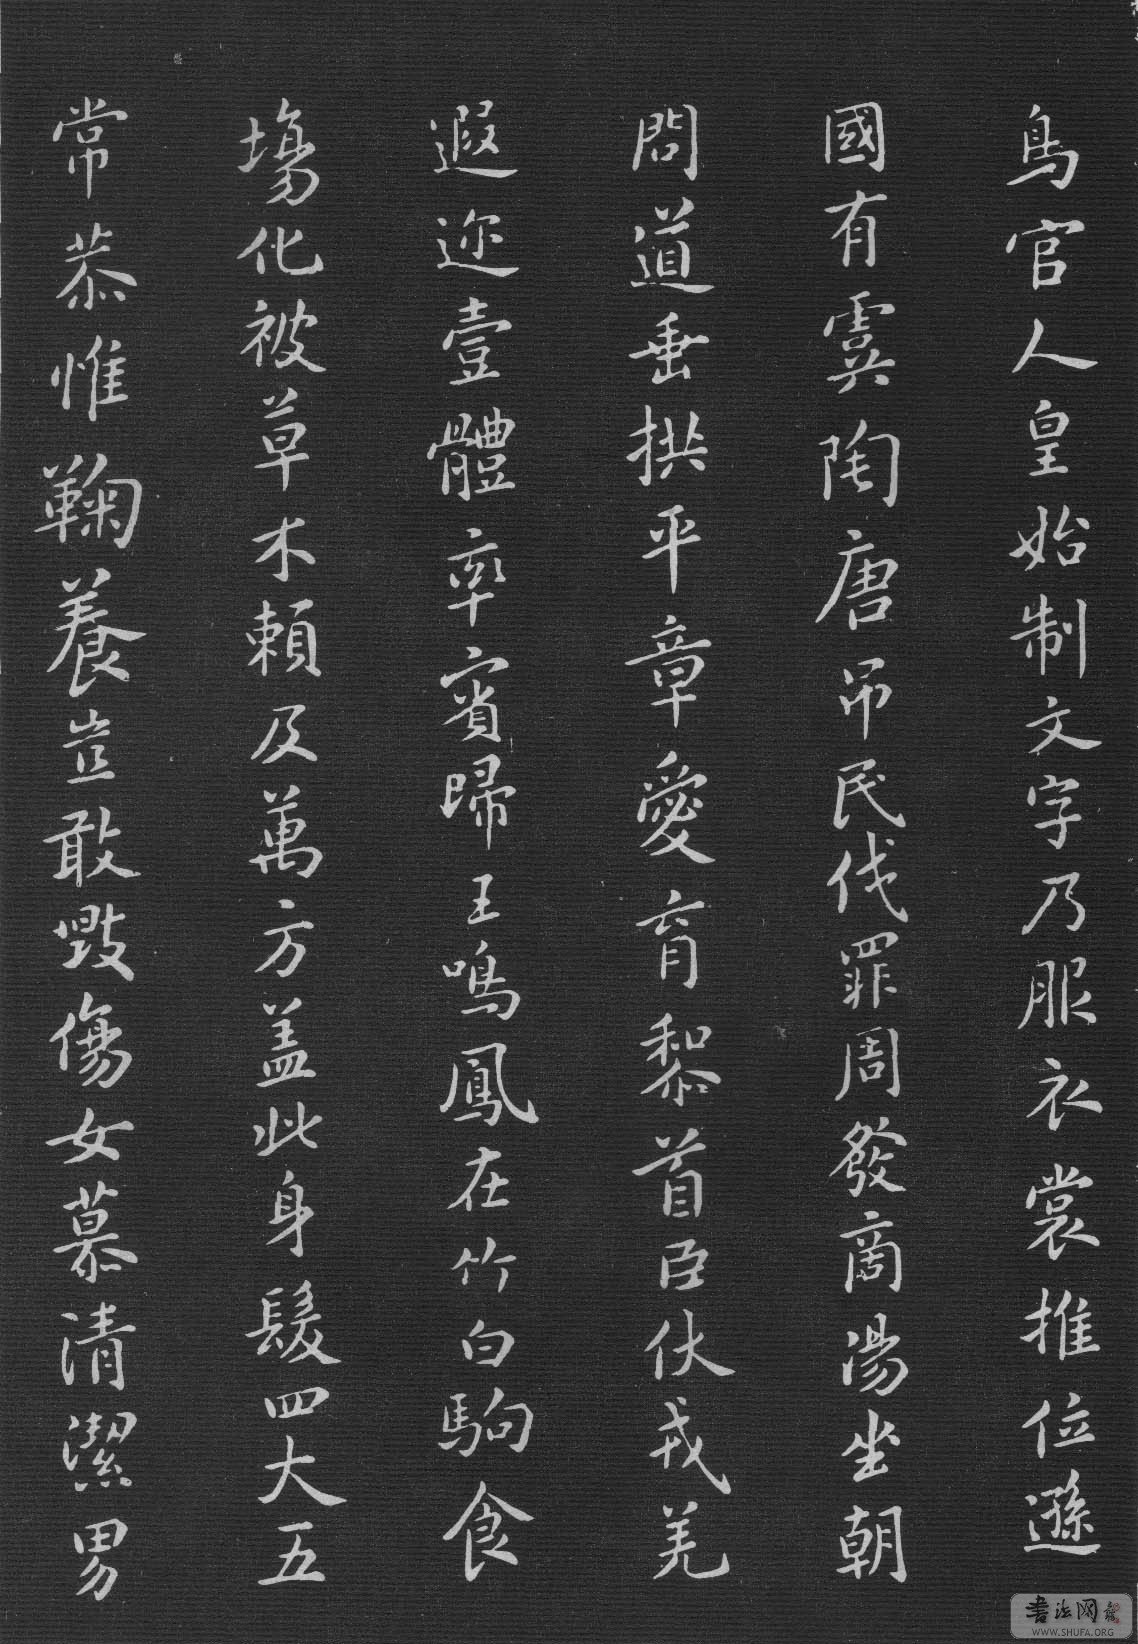 鳥官人皇始制文字乃服衣裳推位遜
國有虞陶唐吊民伐罪周發商湯坐朝
問道垂拱平章愛育黎首臣伏戎羌
遐迩壹體率賓歸王鳴鳳在竹白駒食
場化被草木賴及萬方盖此身髮四大五
常恭惟鞠養豈敢毀傷女慕清潔男
書法网
WWW.SHUFA.ORG